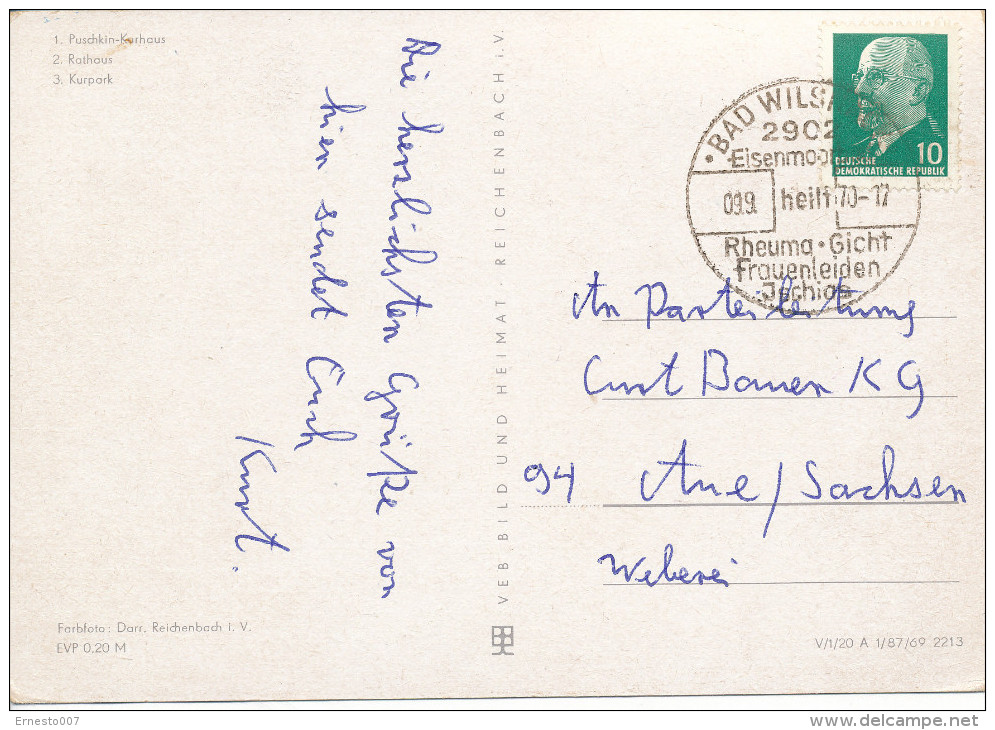 1. Puschkin-Kurhaus
2. Rathaus
3. Kurpark
Die herzlichsten Grüße von
hier sendet Euch
Kurt.
VEB BILD UND HEIMAT · REICHENBACH i. V.
DEUTSCHE
DEMOKRATISCHE REPUBLIK
10
· BAD WILSN
2902
Eisenmoor
09.9. heilt 70-17
Rheuma · Gicht
Frauenleiden
Ischias
An Parteileitung
Curt Bauer KG
94 Aue/Sachsen
Weberei
Farbfoto: Darr, Reichenbach i. V.
EVP 0,20 M
V/1/20 A 1/87/69 2213
Ernesto007
www.delcampe.net